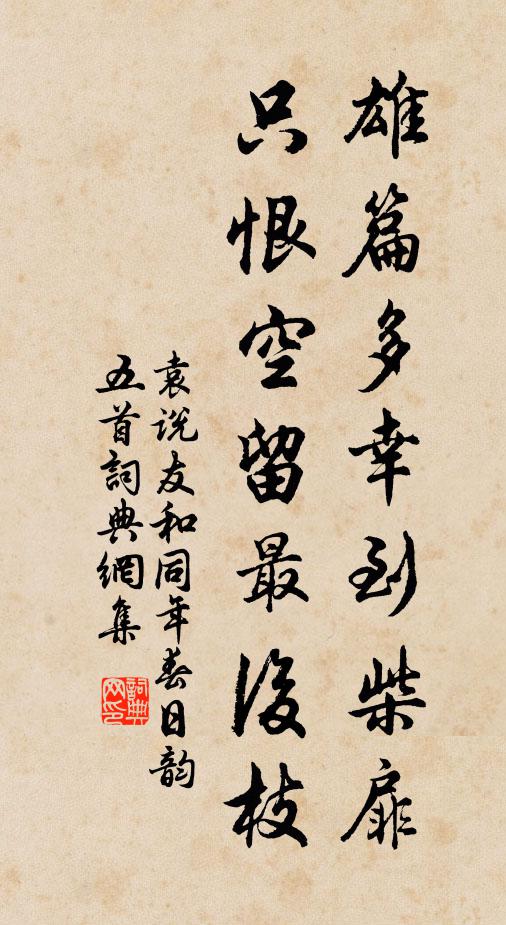 雄篇多幸到柴扉
只恨空留最後枝
袁說友和同年春日韵
五首詞典網集
詞典网印